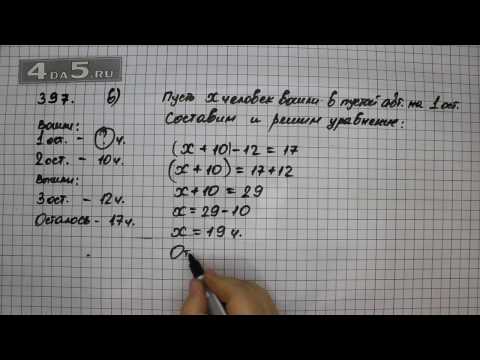 4DA5.RU
397. в) Пусть х человек вошли в пустой авт. на 1 ост.
Составим и решим уравнение:
Вошли:
1 ост. - ? ч.
2 ост. - 10 ч.
Вышли:
3 ост. - 12 ч.
Осталось - 17 ч.
(х + 10) - 12 = 17
(х + 10) = 17 + 12
х + 10 = 29
х = 29 - 10
х = 19 ч.
От